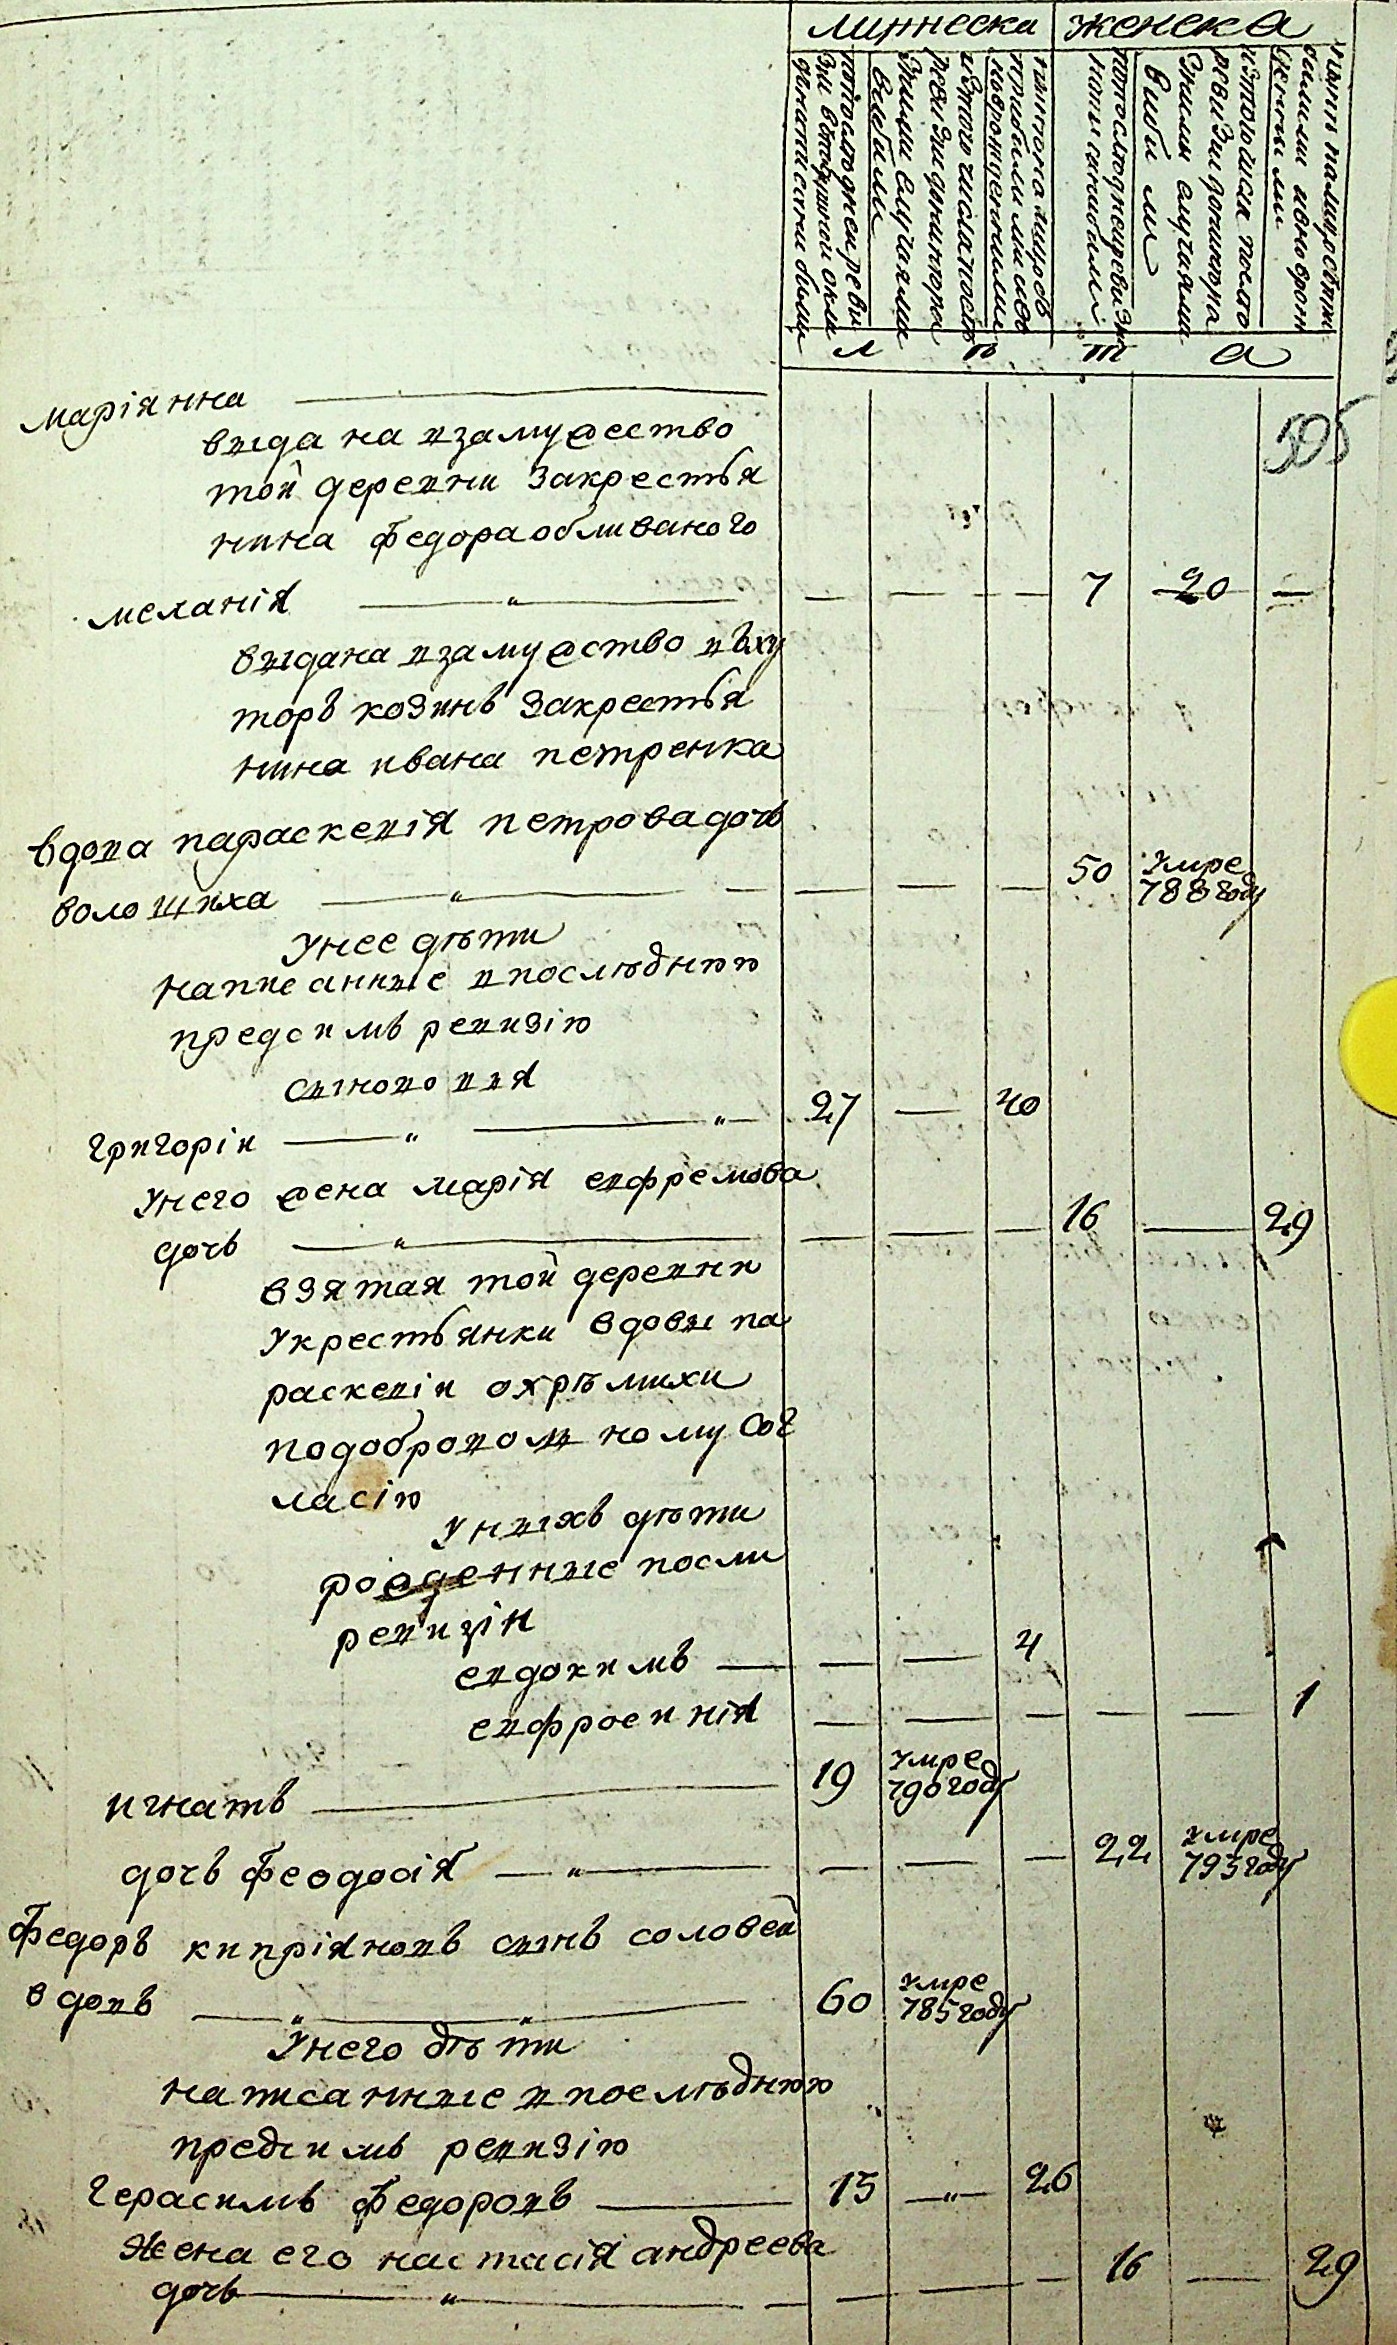 мужеска женска
По последней реви
зии в подушной окла
написаны были
Из того числа после
ревизии до ныне
разными случаями
выбыли
л п т а
505
маріянна
выдана взамужество
той деревни закрестья
нина Федора обливаного
меланія 7 20
выдана взамужство въху
торъ козинъ закрестья
нина ивана петренка
вдова параскевія петрова дочь
волошиха 50 умре 788 году
Унее дѣти
написанные впослѣднюю
предсимъ ревизію
сыновъя
григоріи 27 40
Унего жена марія евфремова
дочь 16 29
взятая той деревни
Укрестьянки вдовы па
раскевіи охрѣмихи
подобровольному сог
ласію
Унихъ дѣти
рожденные посли
ревизіи
евдокимъ 4
евфросинія 1
игнатъ 19 умре 790 году
дочь Феодосія 22 умре 793 году
Федоръ кипріяновъ сынъ соловей
вдовъ 60 умре 785 году
Унего дѣти
написанные впослѣднюю
предсимъ ревизію
герасимъ Федоровъ 15 26
Жена его настасія андреева
дочь 16 29